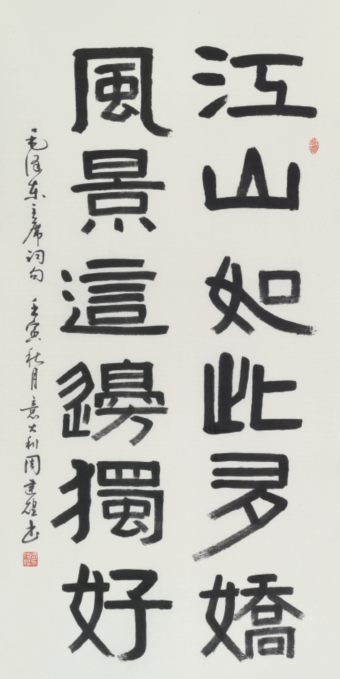 江山如此多嬌
風景這邊獨好
毛澤東主席詞句 壬寅秋月意大利周建煌书